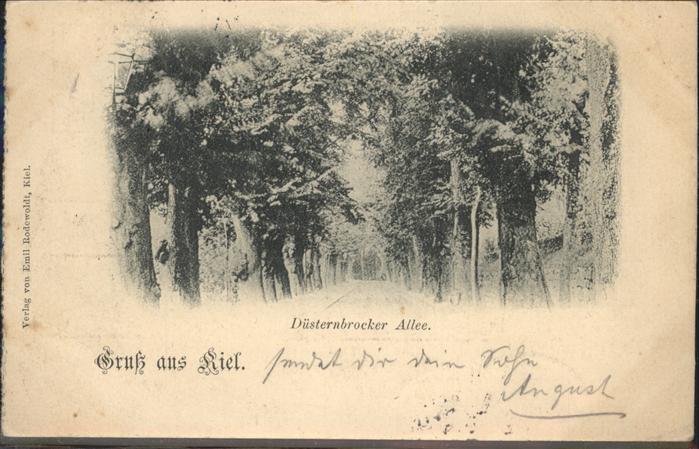 Verlag von Emil Rodewoldt, Kiel.
Düsternbrocker Allee.
Gruß aus Kiel. sendet dir dein Sohn
August